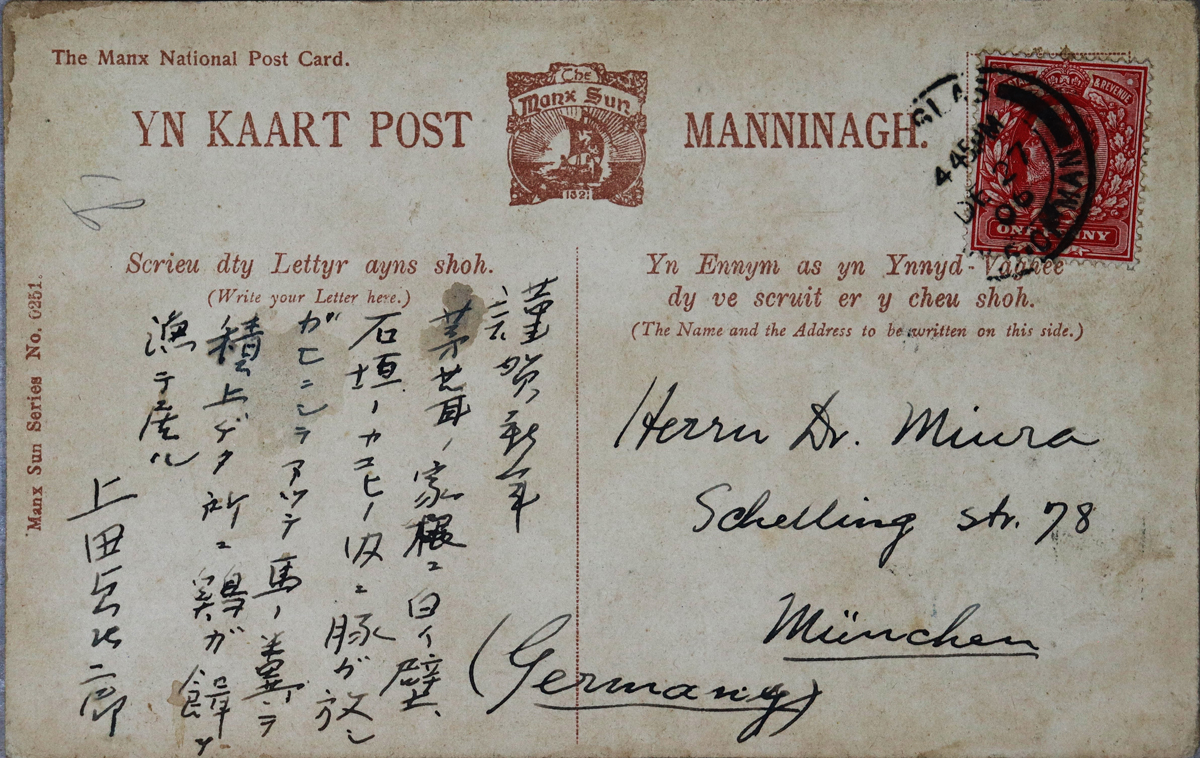 The Manx National Post Card.
YN KAART POST
The
Manx Sun.
1821
MANNINAGH.
4 45PM
DE 27
06
& REVENUE
ONE PENNY
Scrieu dty Lettyr ayns shoh.
(Write your Letter here.)
Yn Ennym as yn Ynnyd-Vaghee
dy ve scruit er y cheu shoh.
(The Name and the Address to be written on this side.)
Manx Sun Series No. 6251.
謹賀新年
茅茸ノ家根ニ白イ壁、
石垣ノカコヒノ内ニ豚ガ放シ
ガヒニシテアツテ馬ノ糞ヲ
積上ゲタ所ニ鶏ガ餌ヲ
漁テ居ル
上田
二郎
Herrn Dr. Miura
Schelling str. 78
München
(Germany)